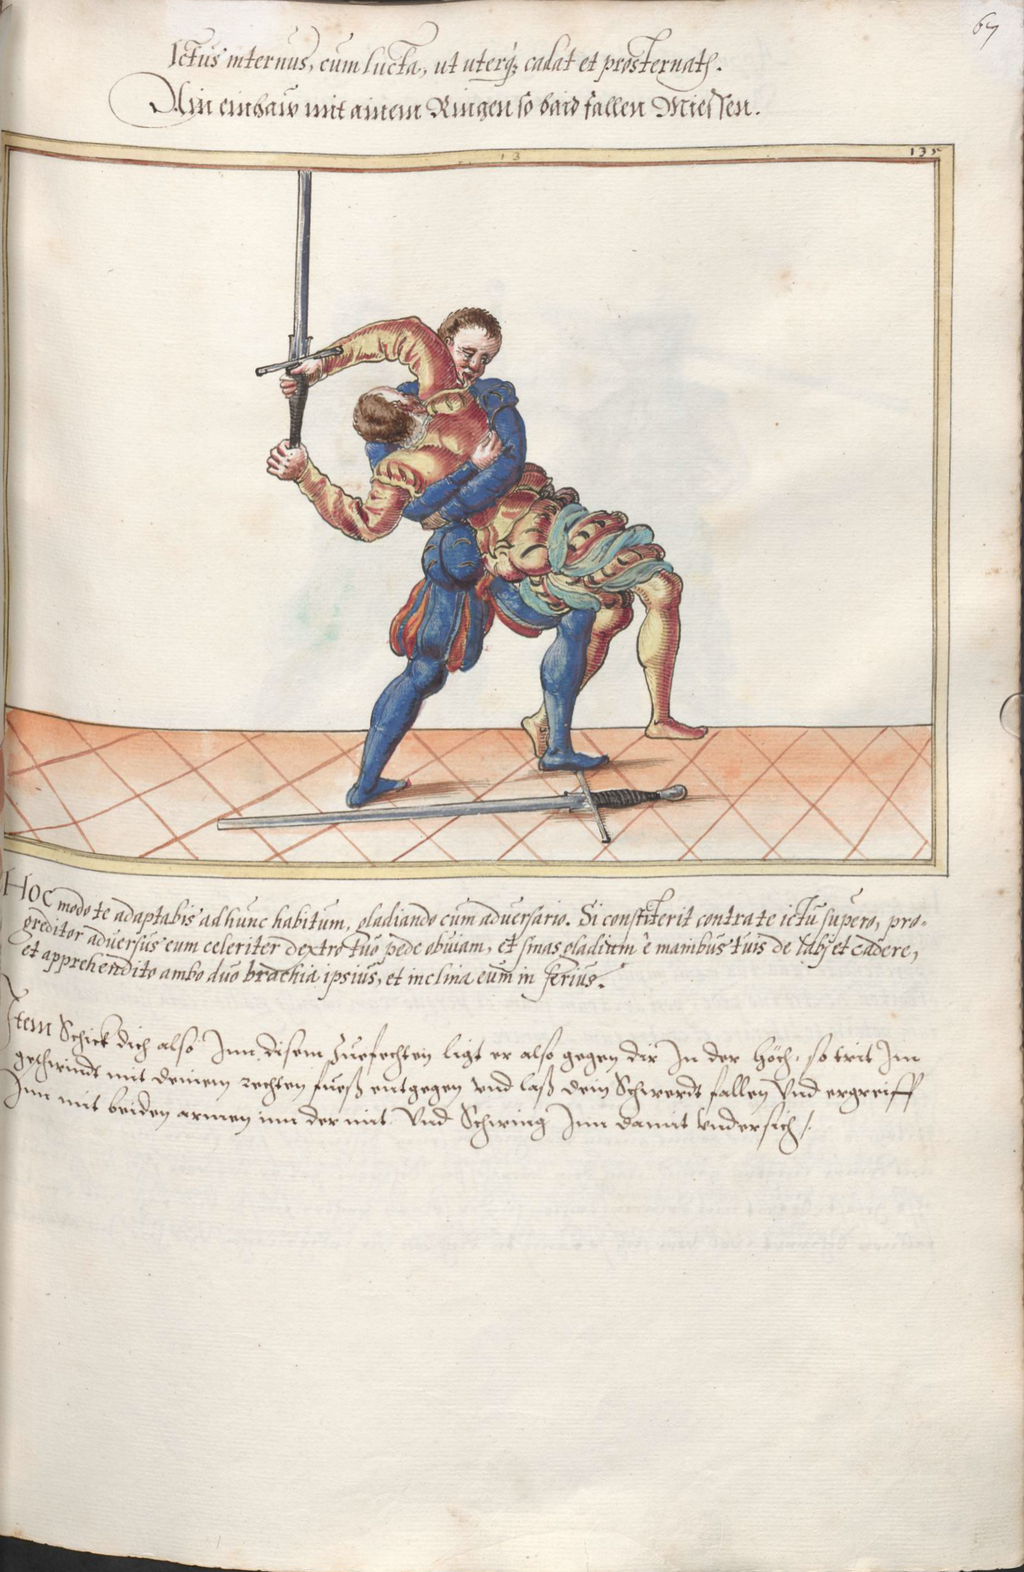 67
Ictus internus, cum lucta, ut uterq; cadat et prosternat.
Ain einhaw mit ainem Ringen so baid fallen Miessen.
13
135
Hoc modo te adaptabis ad hunc habitum, gladiando cum adversario. Si constiterit contra te ictu supero, pro-
greditor adversus eum celeriter dextro tuo pede obviam, et sinas gladium è manibus tuis de labi et cadere,
et apprehendito ambo duo brachia ipsius, et inclina eum in ferius.
Item Schick dich also Inn disem Zuefechten ligt er also gegen dir In der Höch, so trit Im
geschwindt mit deinem rechten fueß entgegen und laß dein Schwerdt fallen Und ergreiff
Inn mit beiden armen inn der mit Und Schwing Inn damit undersich /.